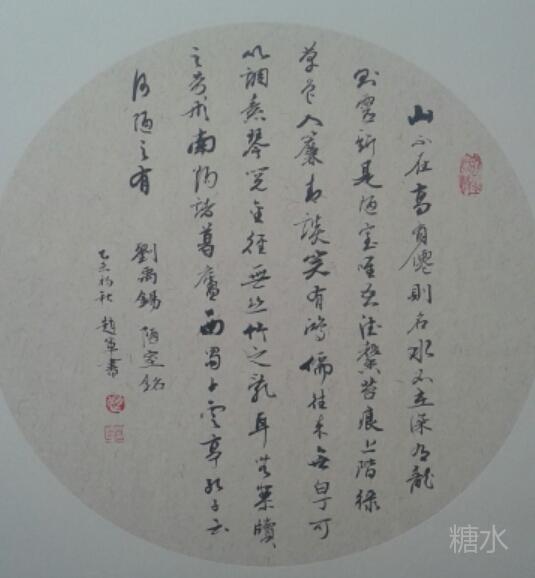 山不在高有僊則名水不在深有龍
則靈斯是陋室唯吾德馨苔痕上階綠
草色入簾青談笑有鴻儒往來無白丁可
以調素琴閱金經無丝竹之乱耳無案牘
之勞形南陽諸葛廬西蜀子雲亭孔子云
何陋之有
劉禹錫 陋室銘
乙未初秋 趙軍書
糖水